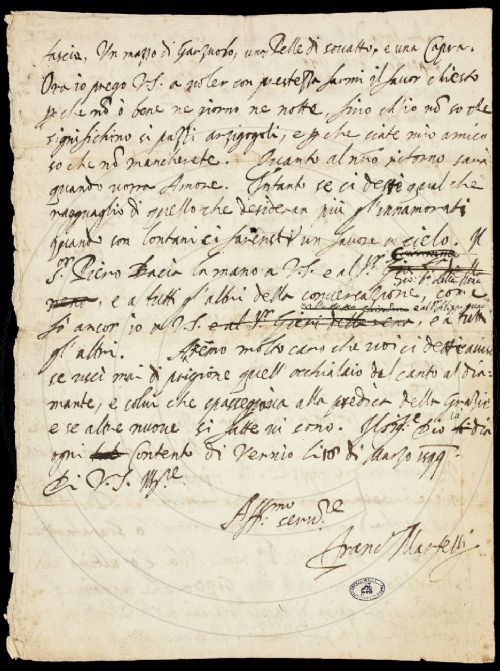 fascio, Un mazzo di Garzuolo, una Pelle di sovatto, e una Capra.
Ora io prego V.S. a voler con prestezza farmi il favor chiesto
perche nō ò bene ne giorno ne notte, fino ch'io nō so che
significhino sì pazzi arzigogoli, e perche siate mio amico
so che nō mancherete. Quanto al mio ritorno sarà
quando vorrà Amore. Intanto se ci deste qual che
ragguaglio di quello che desideran più gl'innamorati
quando son lontani ci fareste un favore a cielo. Il
S.r Piero Bacia la mano a V.S. e al S.r
Gio: B.a delle
e a tutti gl'altri della conversazione, come
fo ancor io a V.S. e al S.r Gieri della rena, e a tutti
gl'altri. molto caro che voi ci deste avviso
se uscì mai di prigione quell'occhialaio dal canto al dia-
mante, e colui che spasseggiava alla predica delle
e se altre nuove si fatte vi sono. Dio la dia
ogni contento di Vernio li di Marzo 1599
Di V.S. M.re
Aff.mo ser.re
Franc.o Martelli